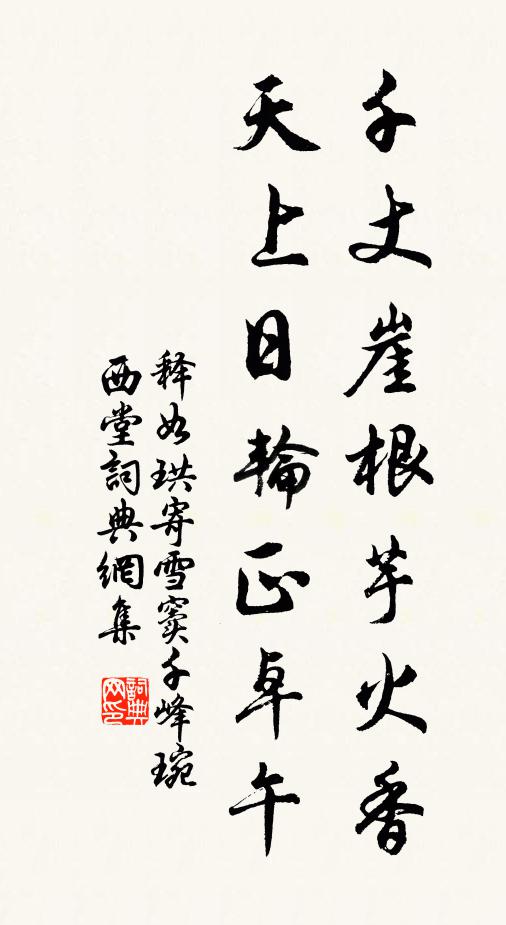 千丈崖根芋火香
天上日輪正卓午
释如珙寄雪窦千峰琬
西堂詞典網集
詞典
网印